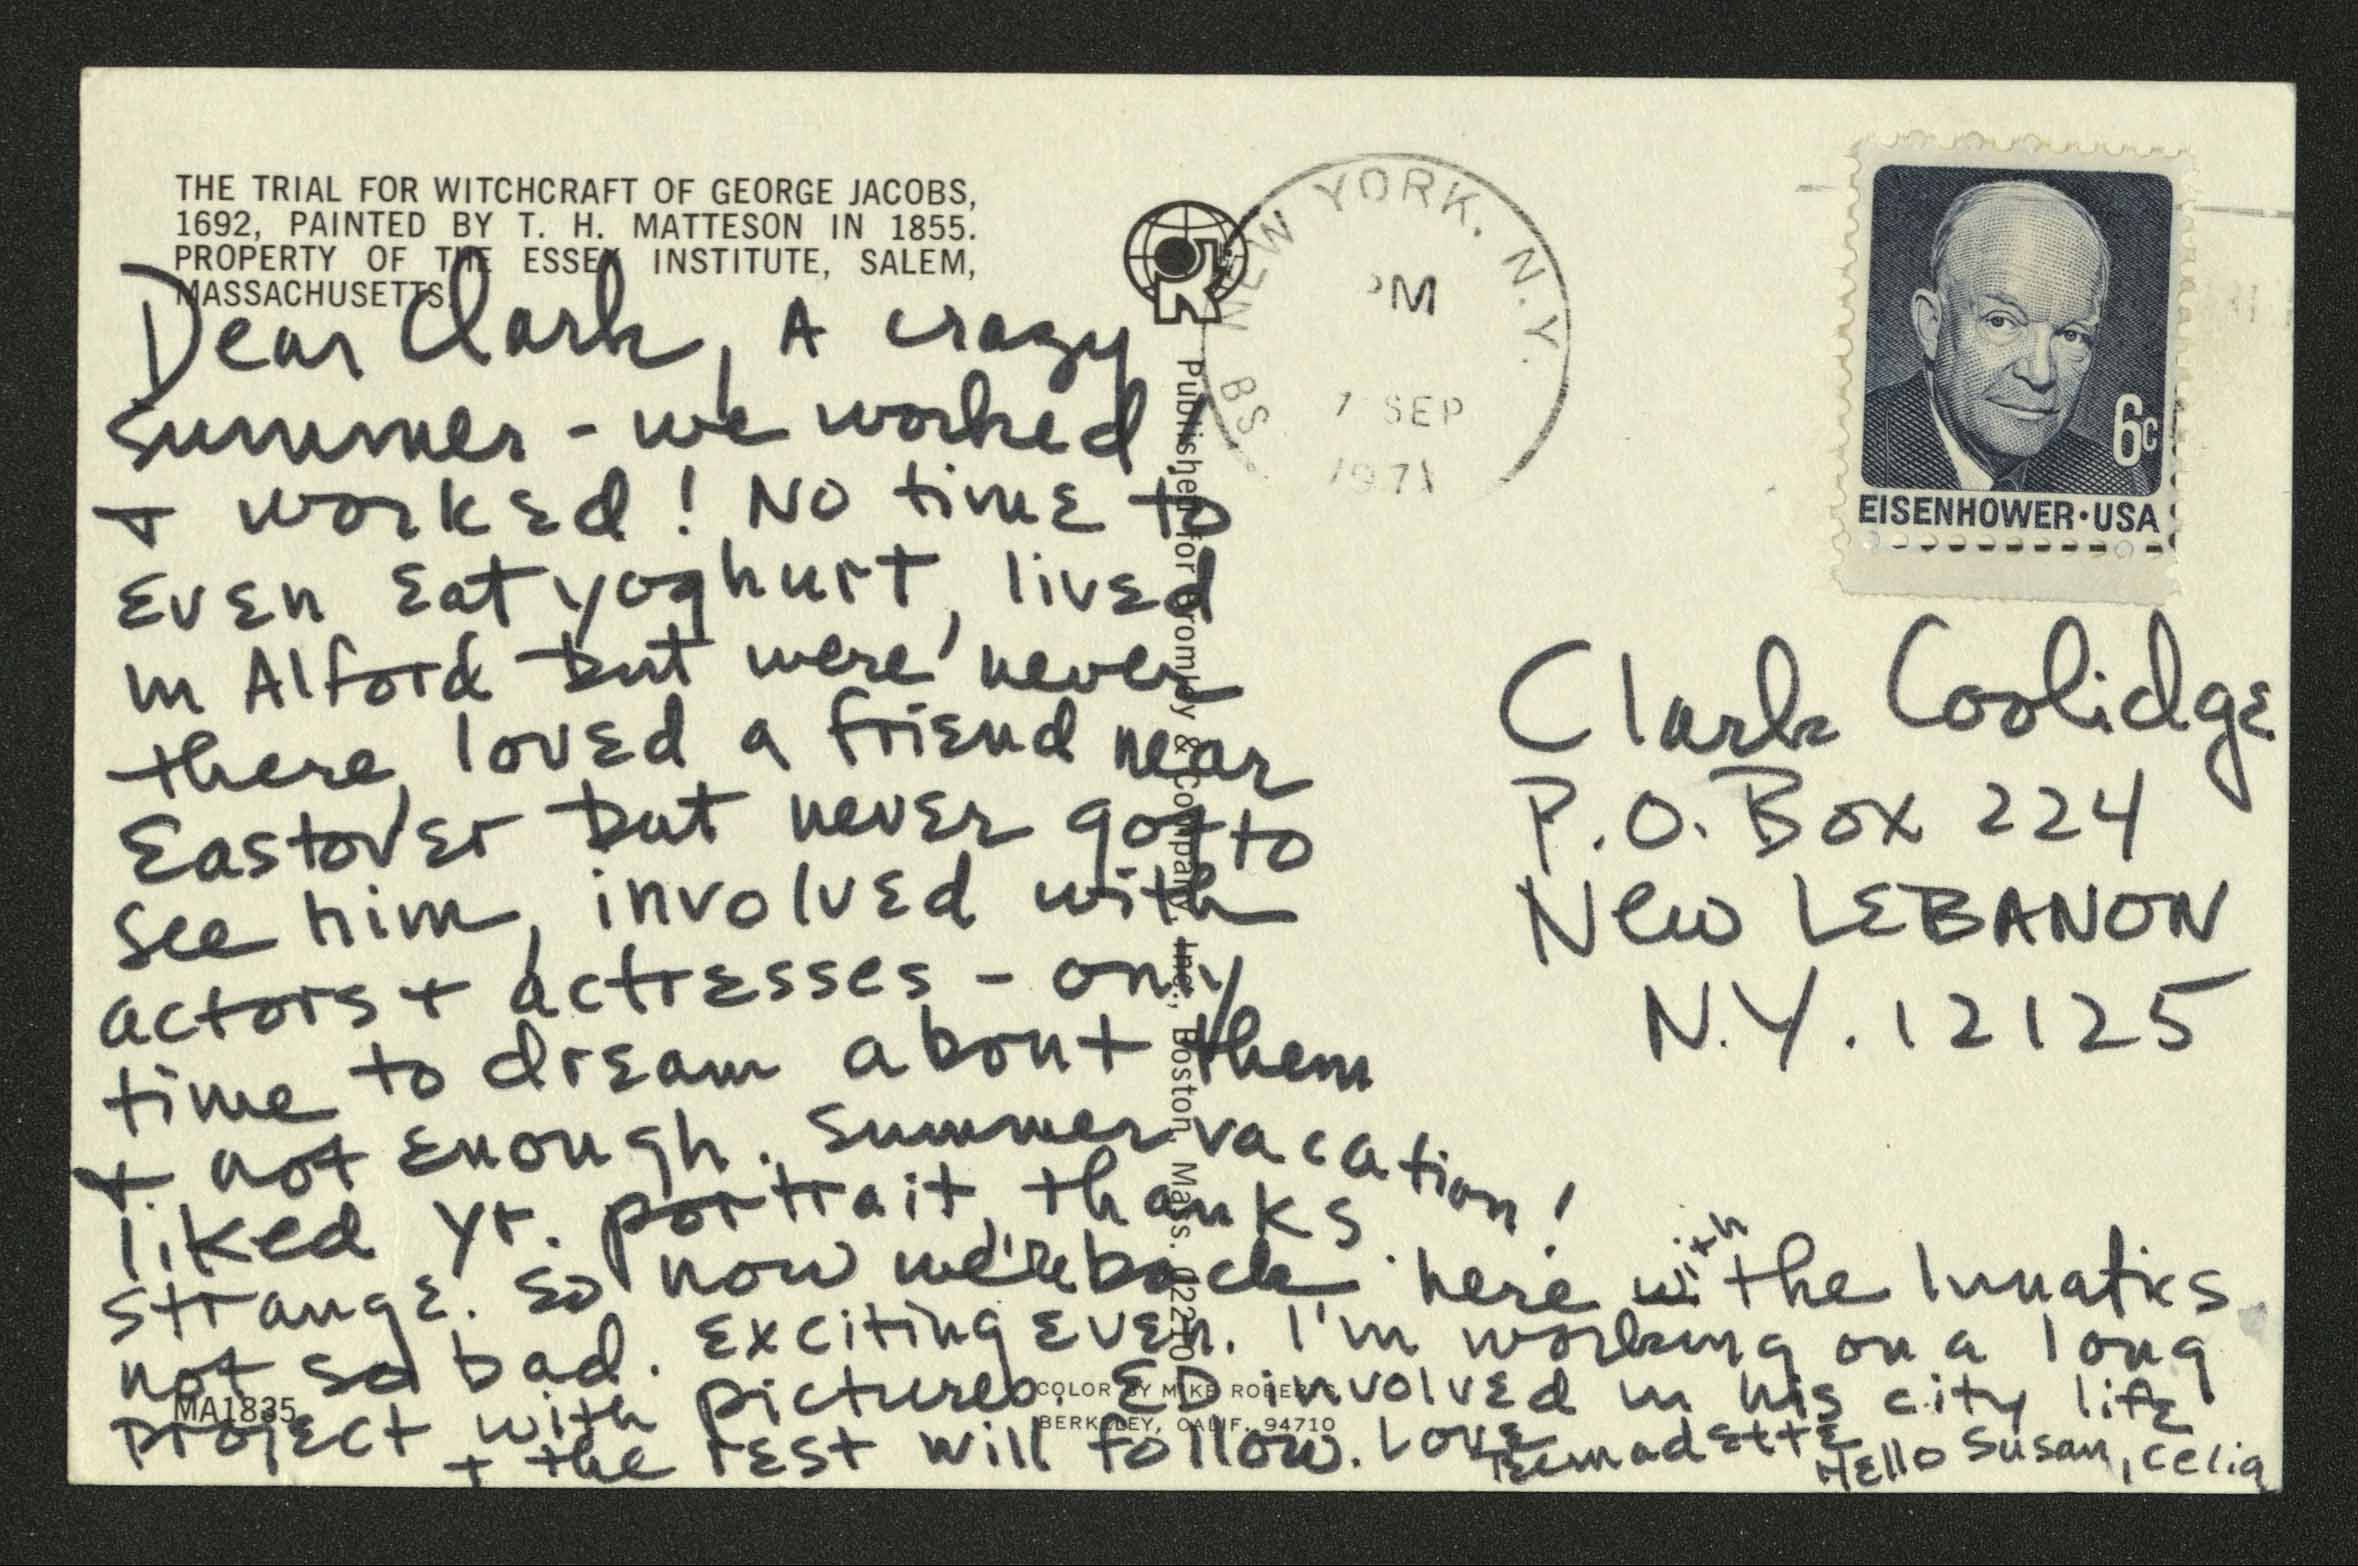 THE TRIAL FOR WITCHCRAFT OF GEORGE JACOBS,
1692, PAINTED BY T. H. MATTESON IN 1855.
PROPERTY OF THE ESSEX INSTITUTE, SALEM,
MASSACHUSETTS.
Dear Clark, A crazy
summer - we worked
+ worked! No time to
even eat yoghurt, lived
in Alford but were never
there, loved a friend near
Eastover but never got to
see him, involved with
actors + actresses - only
time to dream about them
+ not enough. Summer vacation!
liked yr. portrait, thanks.
strange. So now we're back here with the lunatics
not so bad. Exciting even. I'm working on a long
project with pictures. ED involved in his city life
+ the rest will follow. Love
Bernadette
Hello Susan, Celia
MA1835
COLOR BY MIKE ROBERTS
BERKELEY, CALIF. 94710
Published for Bromley & Company, Inc., Boston, Mass. 02210
NEW YORK, N.Y.
PM
7 SEP
1971
BS
6c
EISENHOWER·USA
Clark Coolidge
P.O. Box 224
New LEBANON
N.Y. 12125